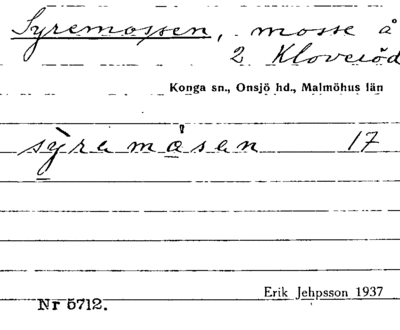 Syremossen, mosse å
2 Kloveröd
Konga sn., Onsjö hd., Malmöhus län
sỳremåsen 17
Erik Jehpsson 1937
Nr 5712.